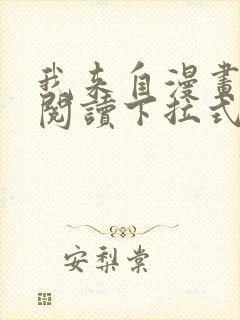 我來自漫畫
閱讀下拉式
安梨棠